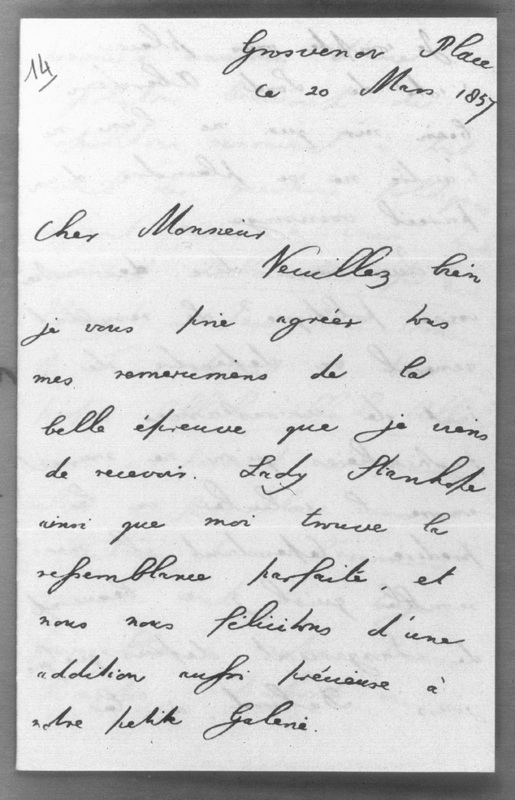 14
Grosvenor Place
ce 20 Mars 1857
Cher Monsieur
Veuillez bien
je vous prie agréer tous
mes remercimens de la
belle épreuve que je viens
de recevoir. Lady Stanhope
ainsi que moi trouve la
ressemblance parfaite, et
nous nous félicitons d'une
addition aussi précieuse à
notre petite Galerie.